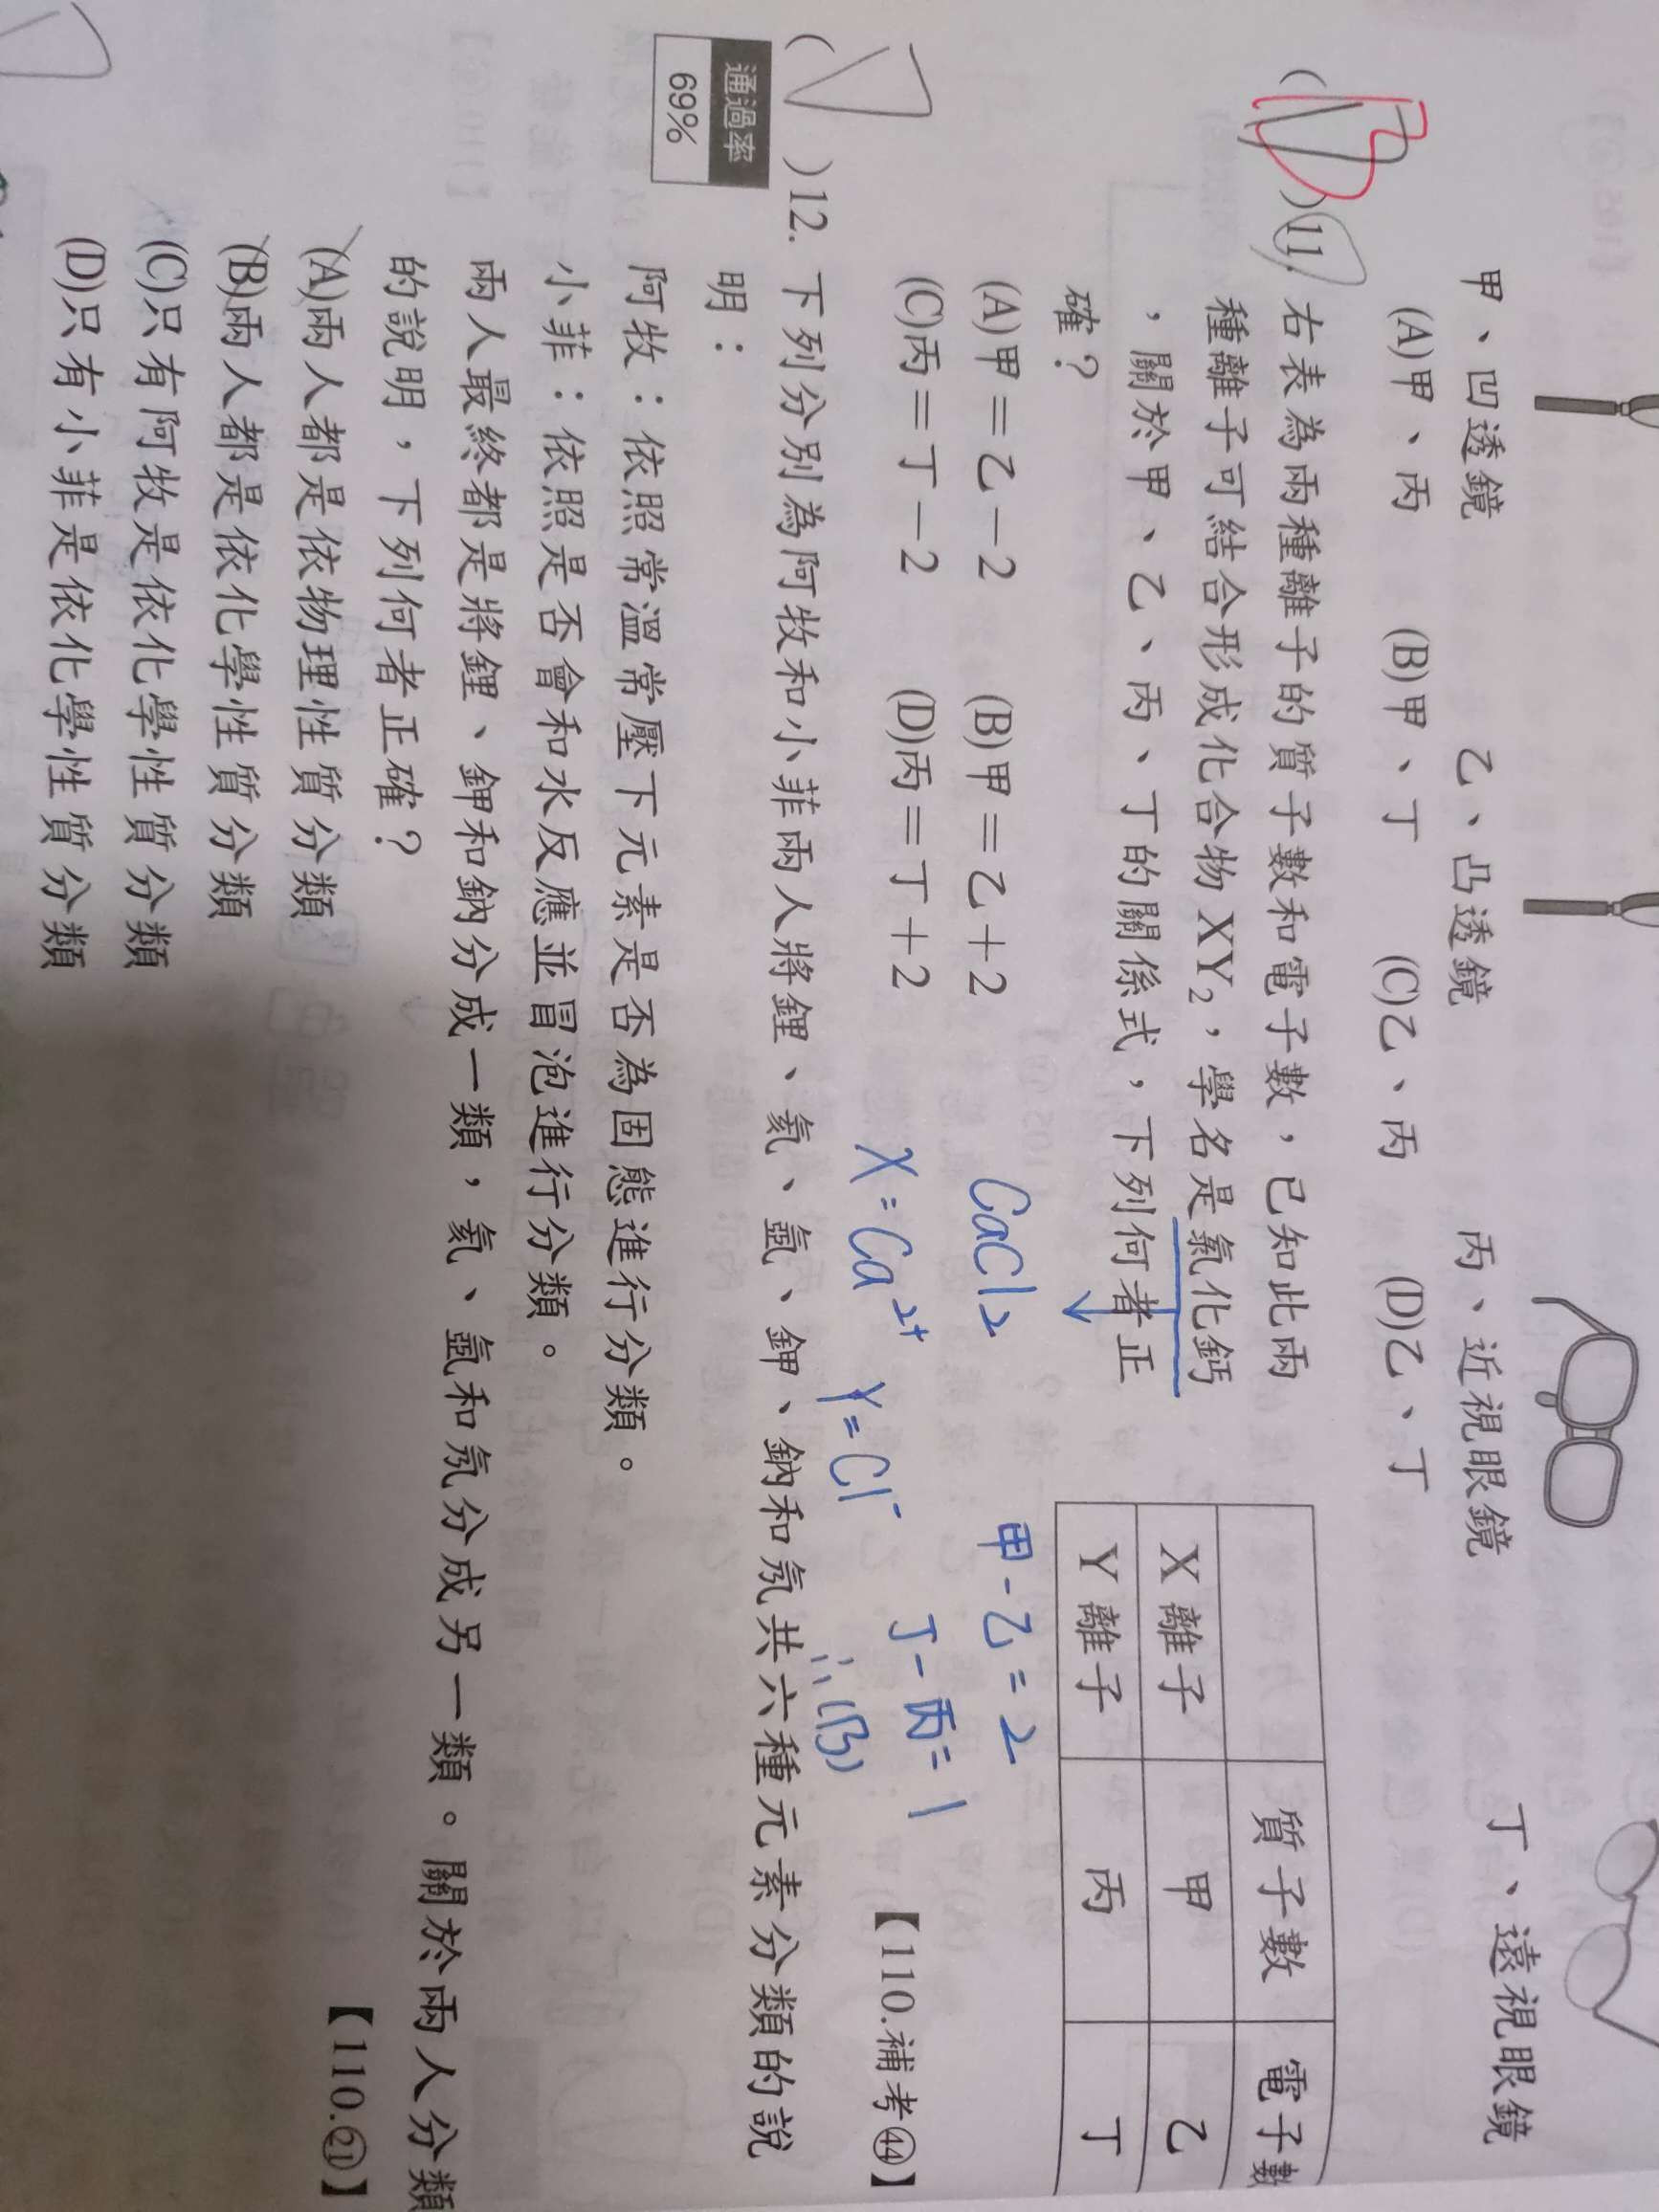 甲、凹透鏡 乙、凸透鏡 丙、近視眼鏡 丁、遠視眼鏡
(A)甲、丙 (B)甲、丁 (C)乙、丙 (D)乙、丁
( )11. 右表為兩種離子的質子數和電子數,已知此兩
種離子可結合形成化合物 XY₂,學名是氯化鈣
,關於甲、乙、丙、丁的關係式,下列何者正
確?
質子數 電子數
X 離子 甲 乙
Y 離子 丙 丁
(A)甲=乙-2 (B)甲=乙+2
(C)丙=丁-2 (D)丙=丁+2
CaCl₂ 甲-乙=2
X=Ca²⁺ Y=Cl⁻ 丁-丙=1
∴(B)
【110.補考㊹】
( D )12. 下列分別為阿牧和小菲兩人將鋰、氦、氬、鉀、鈉和氖共六種元素分類的說
明:
通過率
69%
阿牧:依照常溫常壓下元素是否為固態進行分類。
小菲:依照是否會和水反應並冒泡進行分類。
兩人最終都是將鋰、鉀和鈉分成一類,氦、氬和氖分成另一類。關於兩人分類
的說明,下列何者正確?
【110.㉑】
(A)兩人都是依物理性質分類
(B)兩人都是依化學性質分類
(C)只有阿牧是依化學性質分類
(D)只有小菲是依化學性質分類